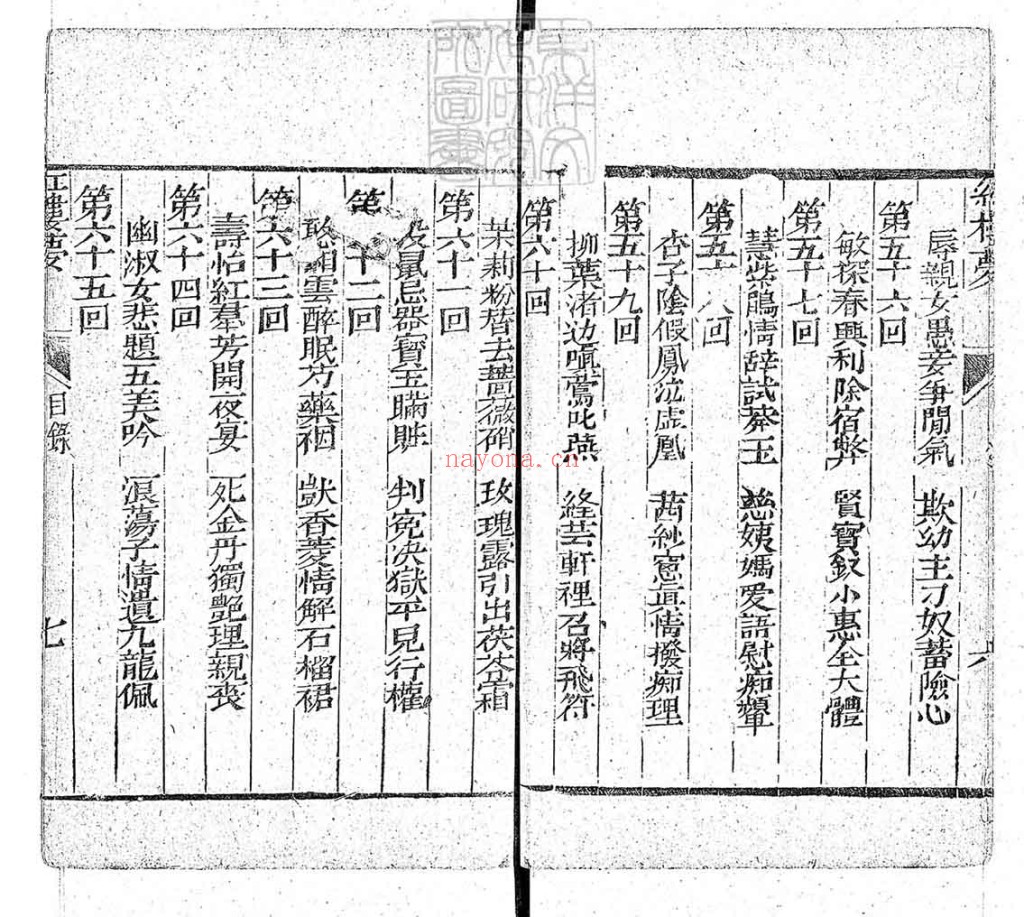 紅樓夢
辱親女愚妾爭閒氣 欺幼主刁奴蓄險心
第五十六回
敏探春興利除宿弊 賢寶釵小惠全大體
第五十七回
慧紫鵑情辞試莽玉 慈姨媽爱語慰痴顰
第五十八回
杏子陰假鳳泣虛凰 茜紗窓真情撥痴理
第五十九回
柳葉渚边嗔鶯叱燕 絳芸軒裡召將飛符
第六十回
茉莉粉替去薔薇硝 玫瑰露引出茯苓霜
第六十一回
投鼠忌器寳玉瞞賍 判寃决獄平兒行權
第 十二回
憨湘雲醉眠芍藥裀 獃香菱情解石榴裙
第六十三回
壽怡紅羣芳開夜宴 死金丹獨艷理親喪
第六十四回
幽淑女悲題五美吟 浪蕩子情遺九龍佩
第六十五回
紅樓夢 目錄 七
nayona.cn